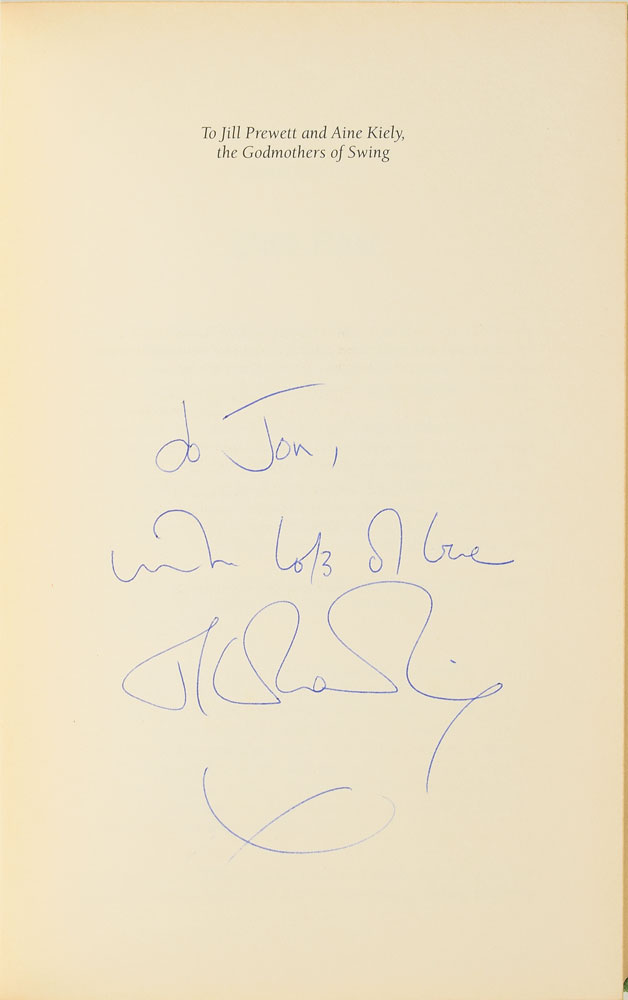 To Jill Prewett and Aine Kiely,
the Godmothers of Swing
to Jon,
with lots of love
JKRowling